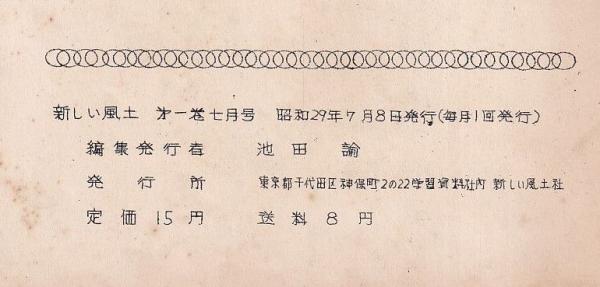 新しい風土 第一巻七月号 昭和29年7月8日発行(毎月1回発行)
編集発行者 池田諭
発行所 東京都千代田区神保町2の22学習資料社内 新しい風土社
定価 15円 送料 8円